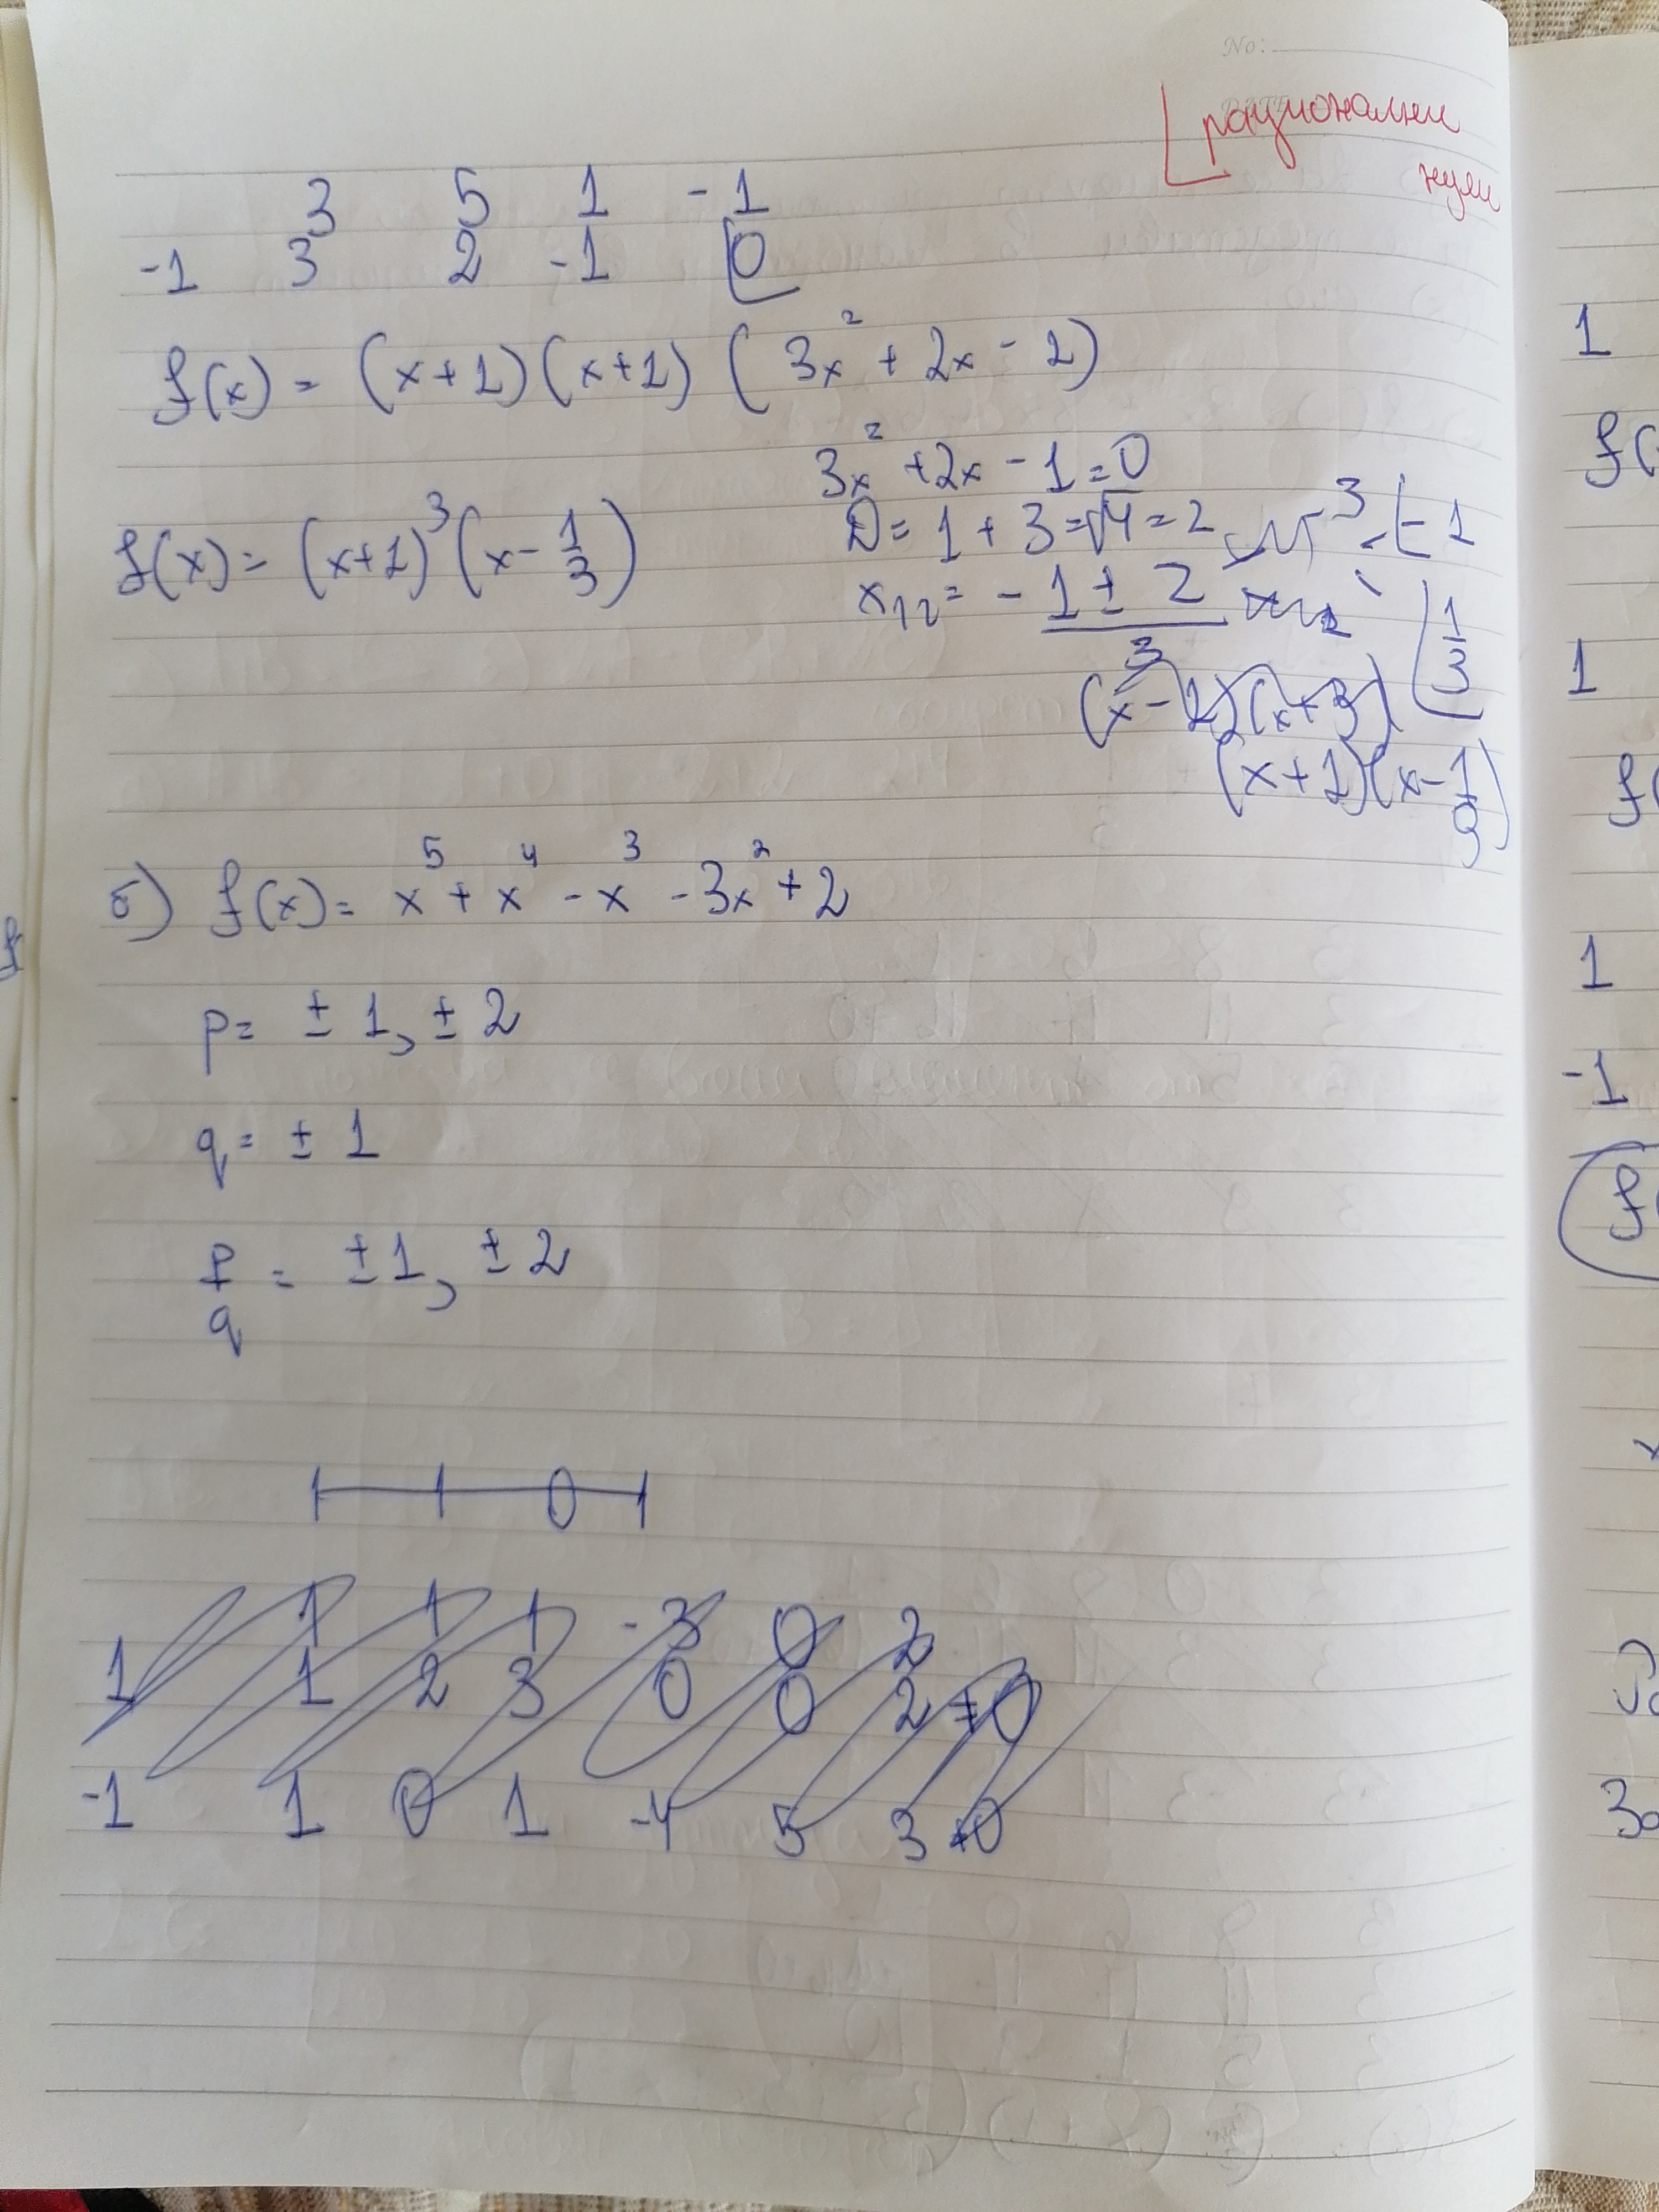 No:
рационални
нули
3 5 1 -1
-1 3 2 -1 0
f(x) = (x+1)(x+1)(3x² + 2x - 2)
3x² + 2x - 1 = 0
D = 1 + 3 = √4 = 2
-1
f(x) = (x+1)³(x - 1/3)
x₁,₂ = -1 ± 2 / 3
1/3
(x-2)(x+3)
(x+1)(x-1/3)
б) f(x) = x⁵ + x⁴ - x³ - 3x² + 2
p = ± 1, ± 2
q = ± 1
p/q = ± 1, ± 2
1 1 1 -3 0 2
1 1 2 3 0 0 2 ≠ 0
-1 1 0 1 -4 5 3 ≠ 0
1
f(
1
f(
1
-1
f(
За